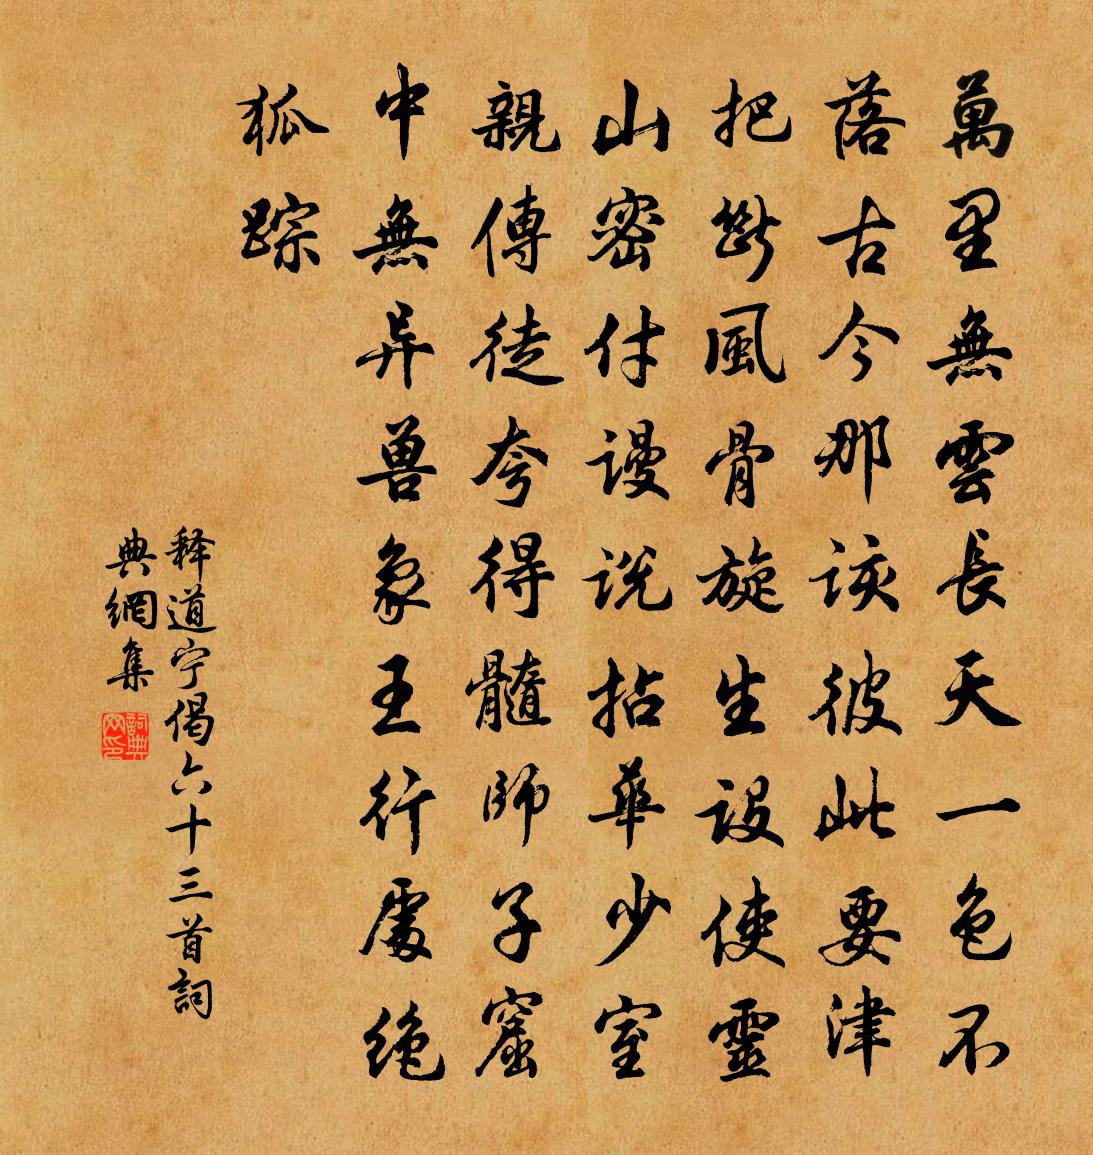 萬里無雲長天一色不
落古今那談彼此要津
把斷風骨旋生設使靈
山密付謾說拈華少室
親傳徒夸得髓師子窟
中無异兽象王行處绝
狐踪
释道宁偈六十三首詞
典網集
詞典
网印